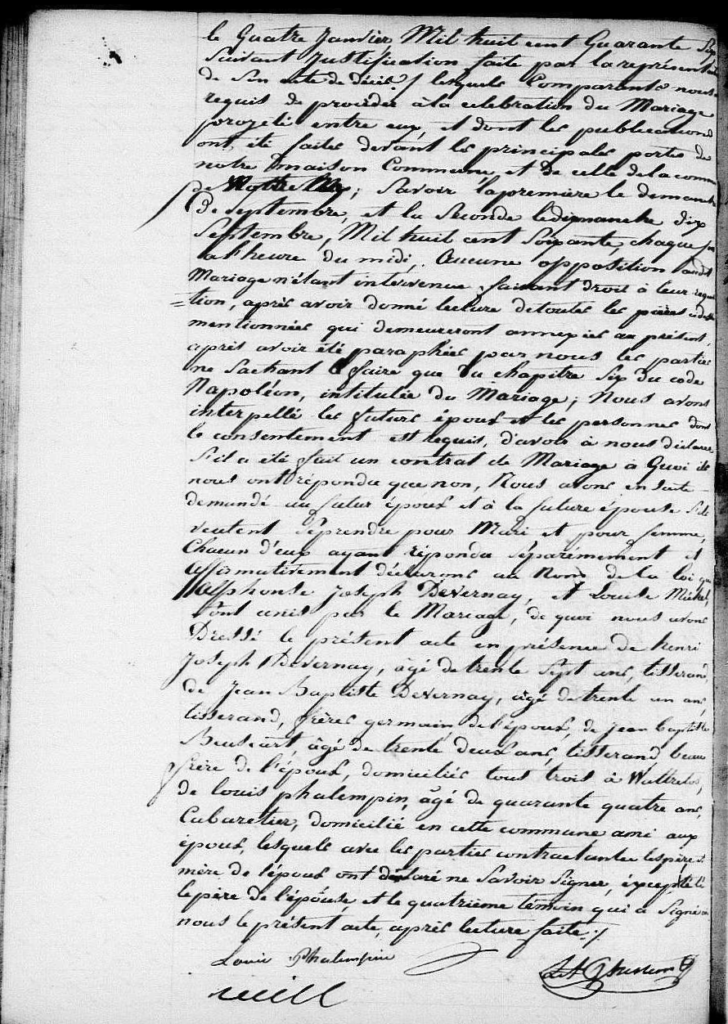 le Quatre Janvier Mil huit cent Quarante Sept
Suivant Justification faite par la représentation
de Son acte de décès / lesquels Comparants nous ont
requis de procéder à la célébration du Mariage
projeté entre eux, et dont les publications
ont été faites devant les principales portes de
notre maison Commune, et de celle de la commune
de ; Savoir la première le demanche
de Septembre, et la Seconde le dimanche dix
Septembre, Mil huit cent Soixante, chaque jour
à l'heure du midi. Aucune opposition audit
Mariage n'étant intervenue, faisant droit à leur réquisi
tion, après avoir donné lecture de toutes les pièces
mentionnées qui demeureront annexées au présent
après avoir été paraphées par nous les parties
ne Sachant le faire que du chapitre Six du code
Napoléon, intitulée du Mariage; Nous avons
interpellé les futurs époux et les personnes dont
le consentement est requis, d'avoir à nous déclarer
S'il a été fait un contrat de Mariage à Quoi ils
nous ont répondu que non, Nous avons ensuite
demandé au futur époux et à la future épouse S'ils
veulent Se prendre pour Mari et pour femme,
Chacun d'eux ayant répondu Séparémement et
affirmativement déclarons au Nom de la loi que
Alphonse Joseph Devernay, et Louise
Sont unis par le Mariage, de quoi nous avons
Dressé le présent acte en présence de henri
Joseph Devernay, âgé de trente Sept ans, tisserand,
de Jean Baptiste Devernay, âgé de trente un ans,
tisserand, frères germain de l'époux, de Jean baptiste
âgé de trente deux ans, tisserand, beau
frère de l'époux, domiciliés tous trois à Wattrelos,
de louis phalempin, âgé de quarante quatre ans,
Cabaretier, domicilié en cette commune ami aux
époux, lesquels avec les parties contractantes les père et
mère de l'époux ont déclaré ne Savoir Signer, excepté le
le père de l'épouse, et le quatrième témoin qui a Signé avec
nous le présent acte, après lecture faite. /
Louis Phalempin